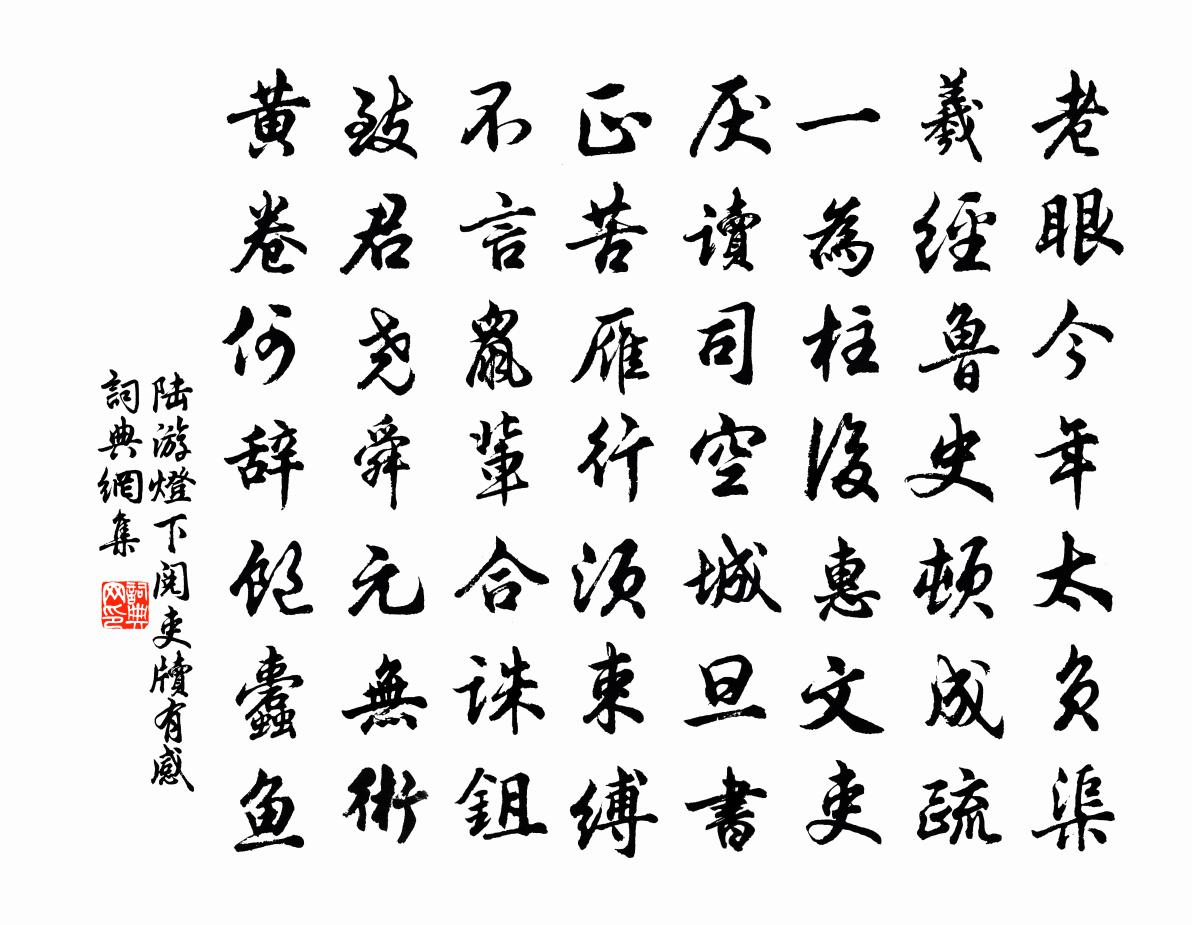 老眼今年太負渠
羲經魯史頓成疏
一為柱後惠文吏
厌讀司空城旦書
正苦雁行須束縛
不言鼠輩合誅鉏
致君堯舜元無術
黄卷何辞飽蠹魚
陆游燈下閱吏牘有感
詞典網集
詞典
网印